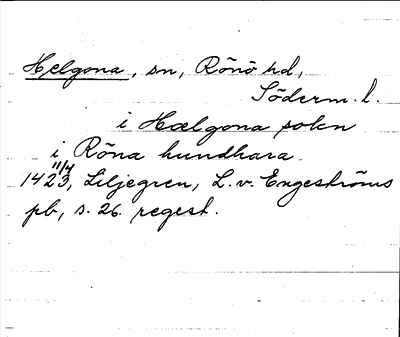 Helgona, sn, Rönö hd,
Söderm. l.
i Hælgona sokn
i Röna hundhara
11/4
1423, Liljegren, L. v. Engeströms
pb, s. 26. regest.